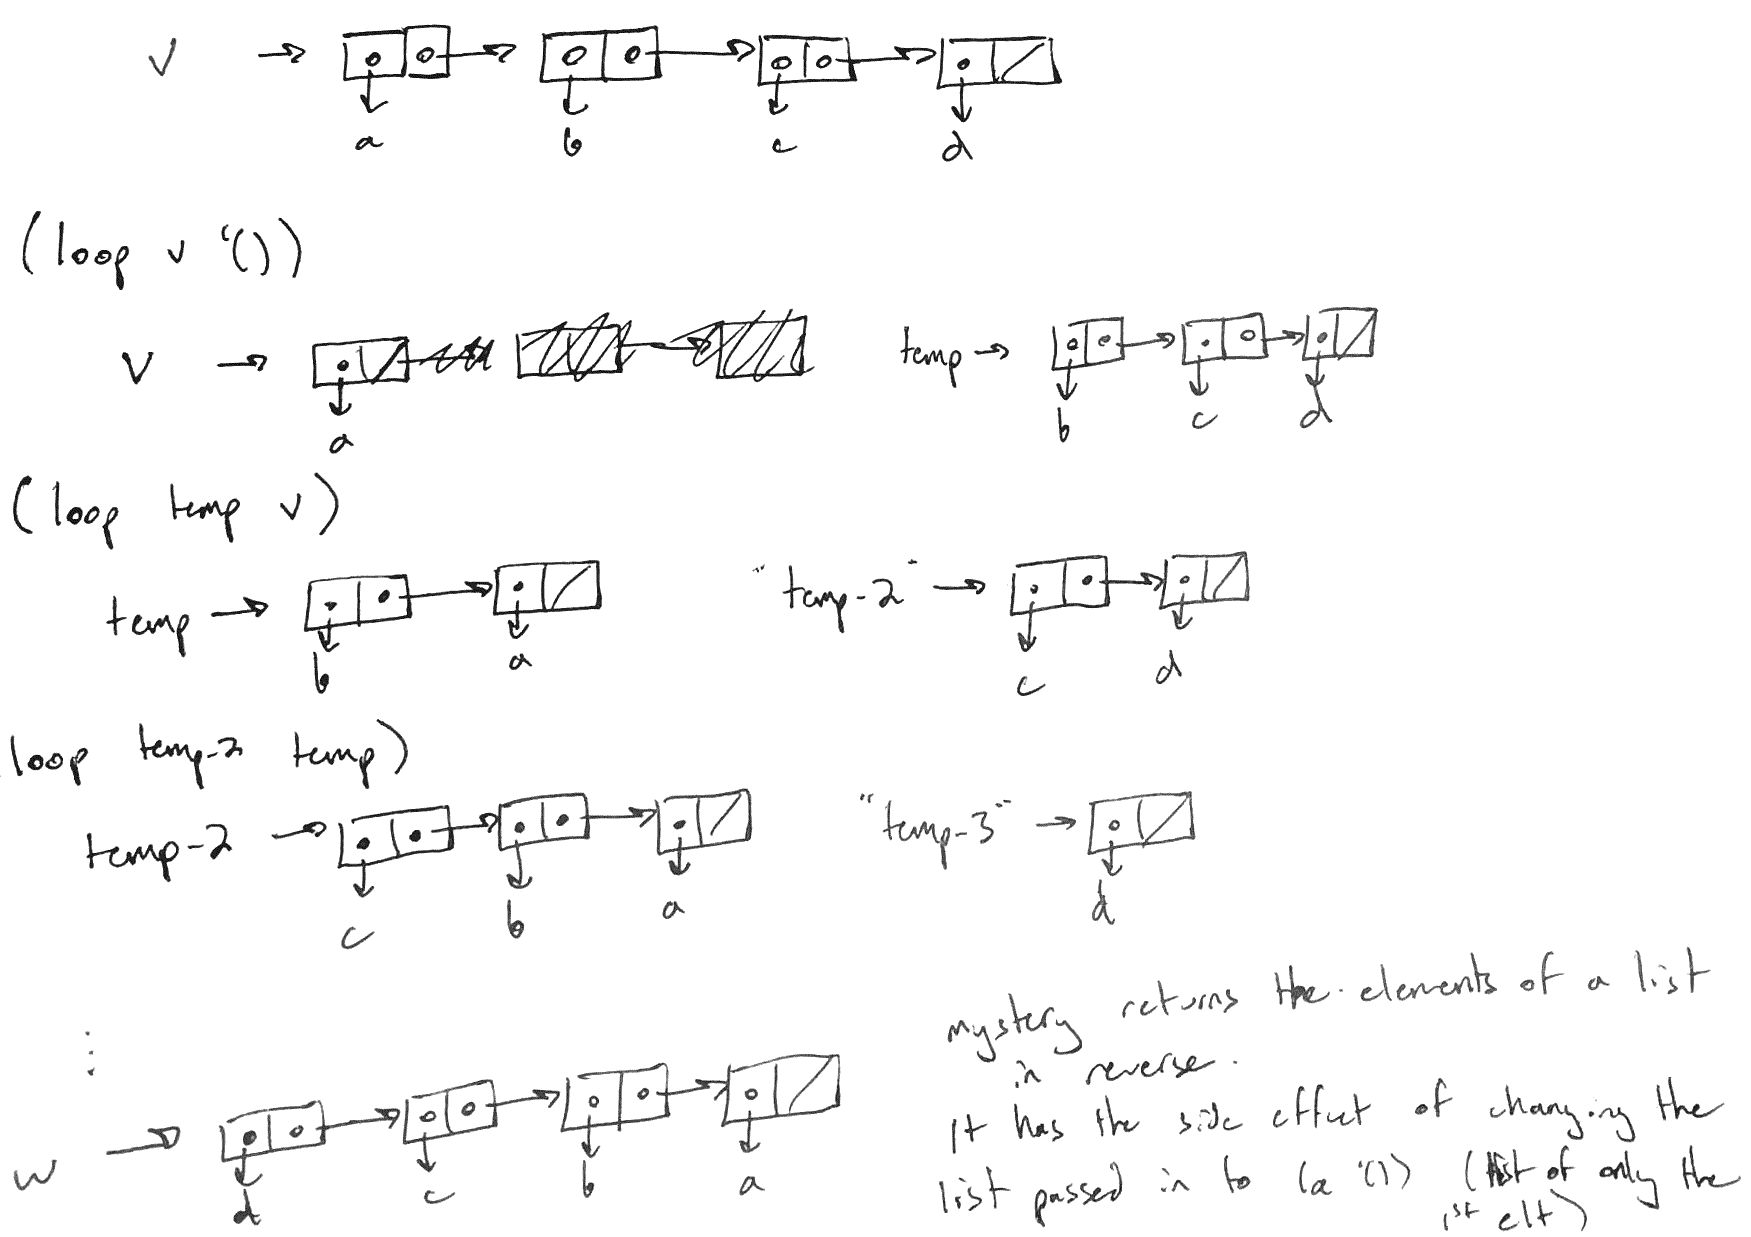 v
a b c d
(loop v '())
v temp
a b c d
(loop temp v)
temp "temp-2"
b a c d
loop temp-2 temp)
temp-2 "temp-3"
c b a d
mystery returns the elements of a list
in reverse.
It has the side effect of changing the
w
list passed in to (a '()) (list of only the
d c b a
1st elt)